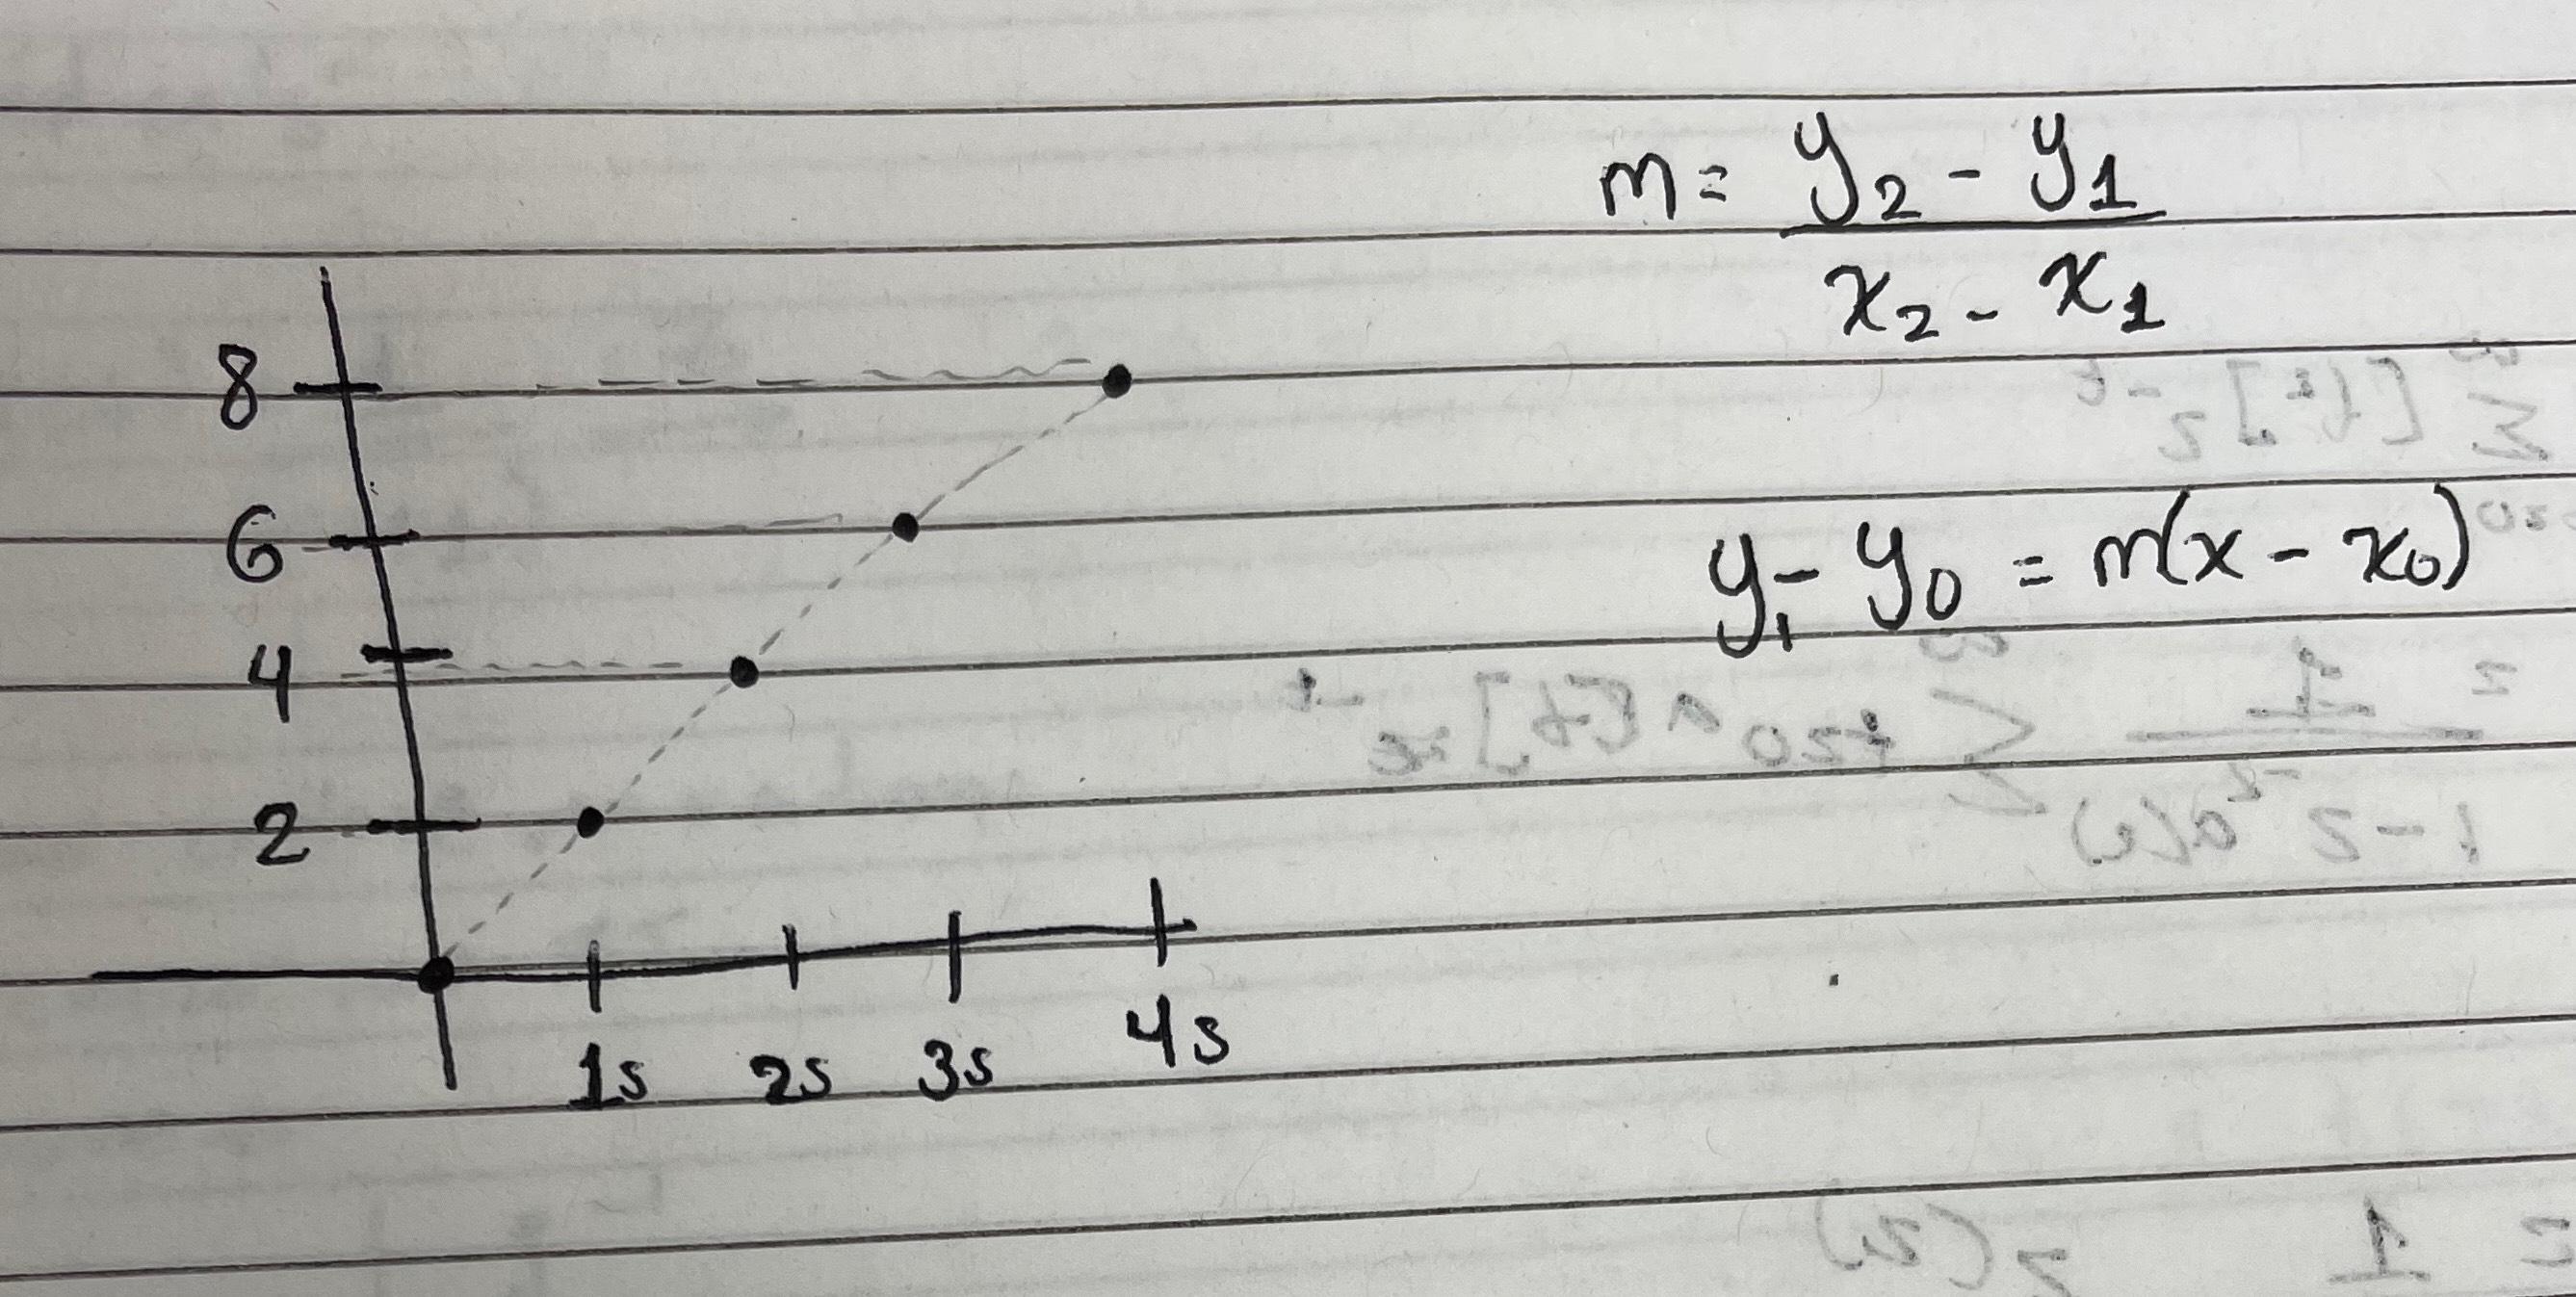 m = y₂ - y₁
x₂ - x₁
8
6
y₁ - y₀ = m(x - x₀)
4
2
1s 2s 3s 4s